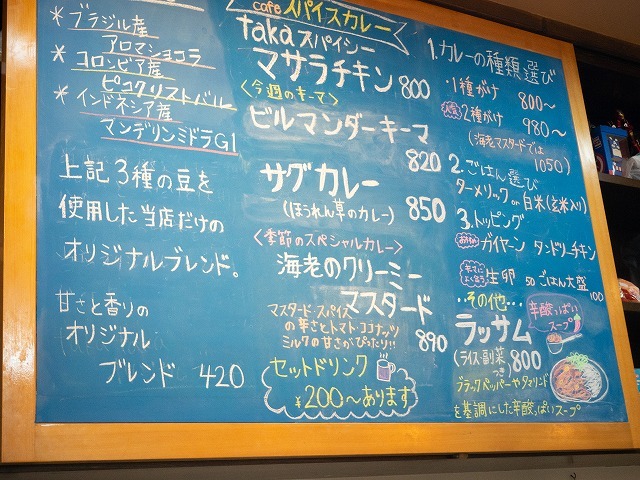 * ブラジル産
アロマショコラ
* コロンビア産
ピコクリストバル
* インドネシア産
マンデリンミトラG1
上記3種の豆を
使用した当店だけの
オリジナルブレンド。
甘さと香りの
オリジナル
ブレンド 420
cafe スパイスカレー
taka スパイシー
マサラチキン 800
〈今週のキーマ〉
ビルマンダーキーマ
820
サグカレー
(ほうれん草のカレー) 850
〈季節のスペシャルカレー〉
海老のクリーミー
マスタード
マスタード・スパイス
の辛さとトマト・ココナッツ
ミルクの甘さがぴったり!!
890
セットドリンク
¥200〜あります
1.カレーの種類選び
・1種がけ 800〜
人気 ・2種がけ 980〜
(海老マスタードでは
1050)
2.ごはん選び
ターメリック or 白米(玄米入り)
3.トッピング
ガイヤーン タンドリーチキン
生卵 50 ごはん大盛
100
..その他...
ラッサム
辛酸っぱい
スープ
(ライス・副菜
つき) 800
ブラックペッパーやタマリンド
を基調にした辛酸っぱいスープ